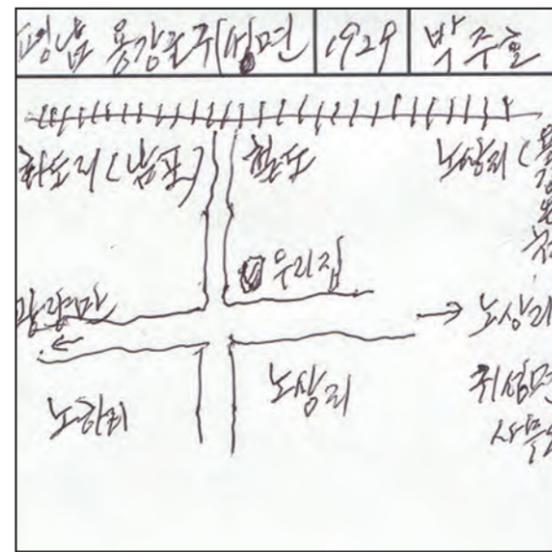 평남 용강군 귀성면 1929 박주호
화도리(남포) 철도 노상리(용강온천
우리집
광량만 노상리
노하리 노상리 귀성면
사무